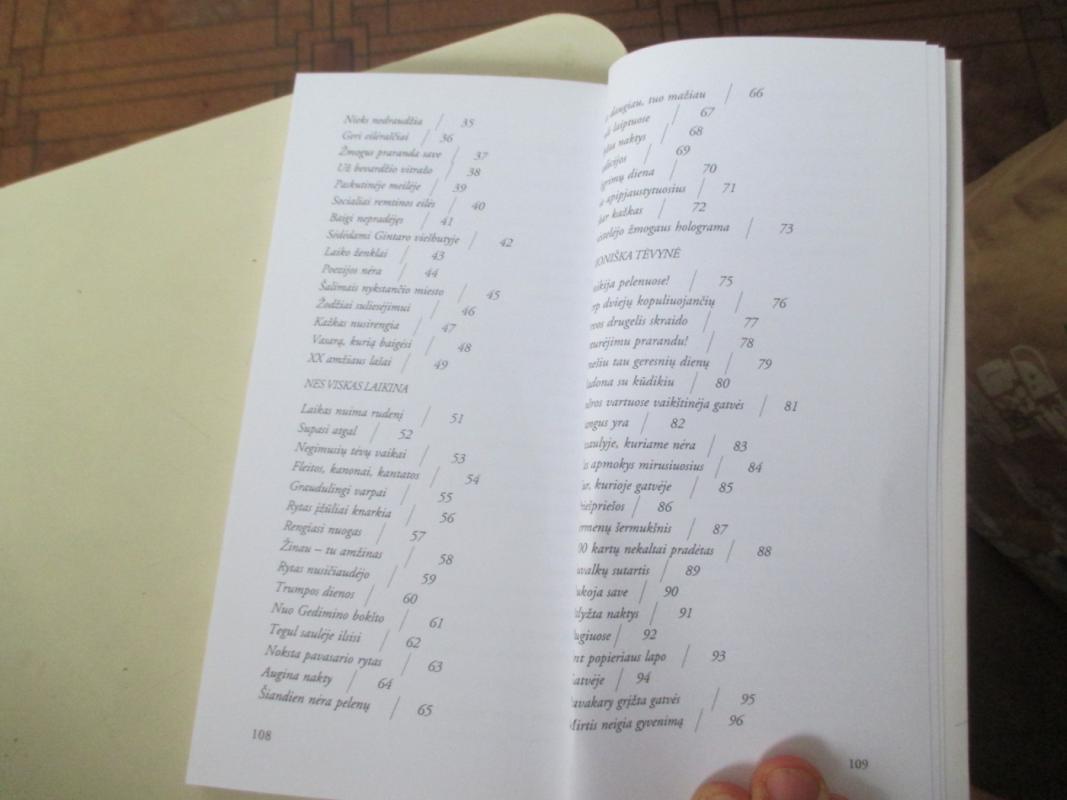 Nieks nedraudžia / 35
Geri eilėraščiai / 36
Žmogus praranda save / 37
Už bevardžio vitražo / 38
Paskutinėje meilėje / 39
Socialiai remtinos eilės / 40
Baigi nepradėjęs / 41
Sėdėdami Gintaro viešbutyje / 42
Laiko ženklai / 43
Poezijos nėra / 44
Šalimais nykstančio miesto / 45
Žodžiai suliesėjimui / 46
Kažkas nusirengia / 47
Vasarą, kurią baigėsi / 48
XX amžiaus lašai / 49
NES VISKAS LAIKINA
Laikas nuima rudenį / 51
Supasi atgal / 52
Negimusių tėvų vaikai / 53
Fleitos, kanonai, kantatos / 54
Graudulingi varpai / 55
Rytas įžūliai knarkia / 56
Rengiasi nuogas / 57
Žinau – tu amžinas / 58
Rytas nusičiaudėjo / 59
Trumpos dienos / 60
Nuo Gedimino bokšto / 61
Tegul saulėje ilsisi / 62
Noksta pavasario rytas / 63
Augina naktų / 64
Šiandien nėra pelenų / 65
108
daugiau, tuo mažiau / 66
laiptuose / 67
naktys / 68
/ 69
diena / 70
apipjaustytuosius / 71
kažkas / 72
žmogaus holograma / 73
TĖVYNĖ
pelenuose! / 75
dviejų kopuliuojančių / 76
drugelis skraido / 77
prarandu! / 78
tau geresnių dienų / 79
su kūdikiu / 80
vartuose vaikštinėja gatvės / 81
yra / 82
kuriame nėra / 83
apmokys mirusiuosius / 84
kurioje gatvėje / 85
/ 86
šermukšnis / 87
kartų nekaltai pradėtas / 88
sutartis / 89
save / 90
naktys / 91
/ 92
popieriaus lapo / 93
/ 94
grįžta gatvės / 95
Mirtis neigia gyvenimą / 96
109